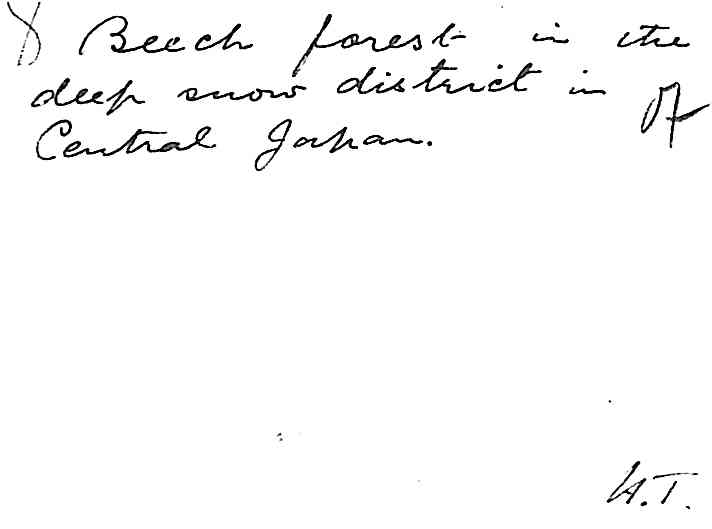 Beech forest in the
deep snow district in of
Central Japan.
H.T.